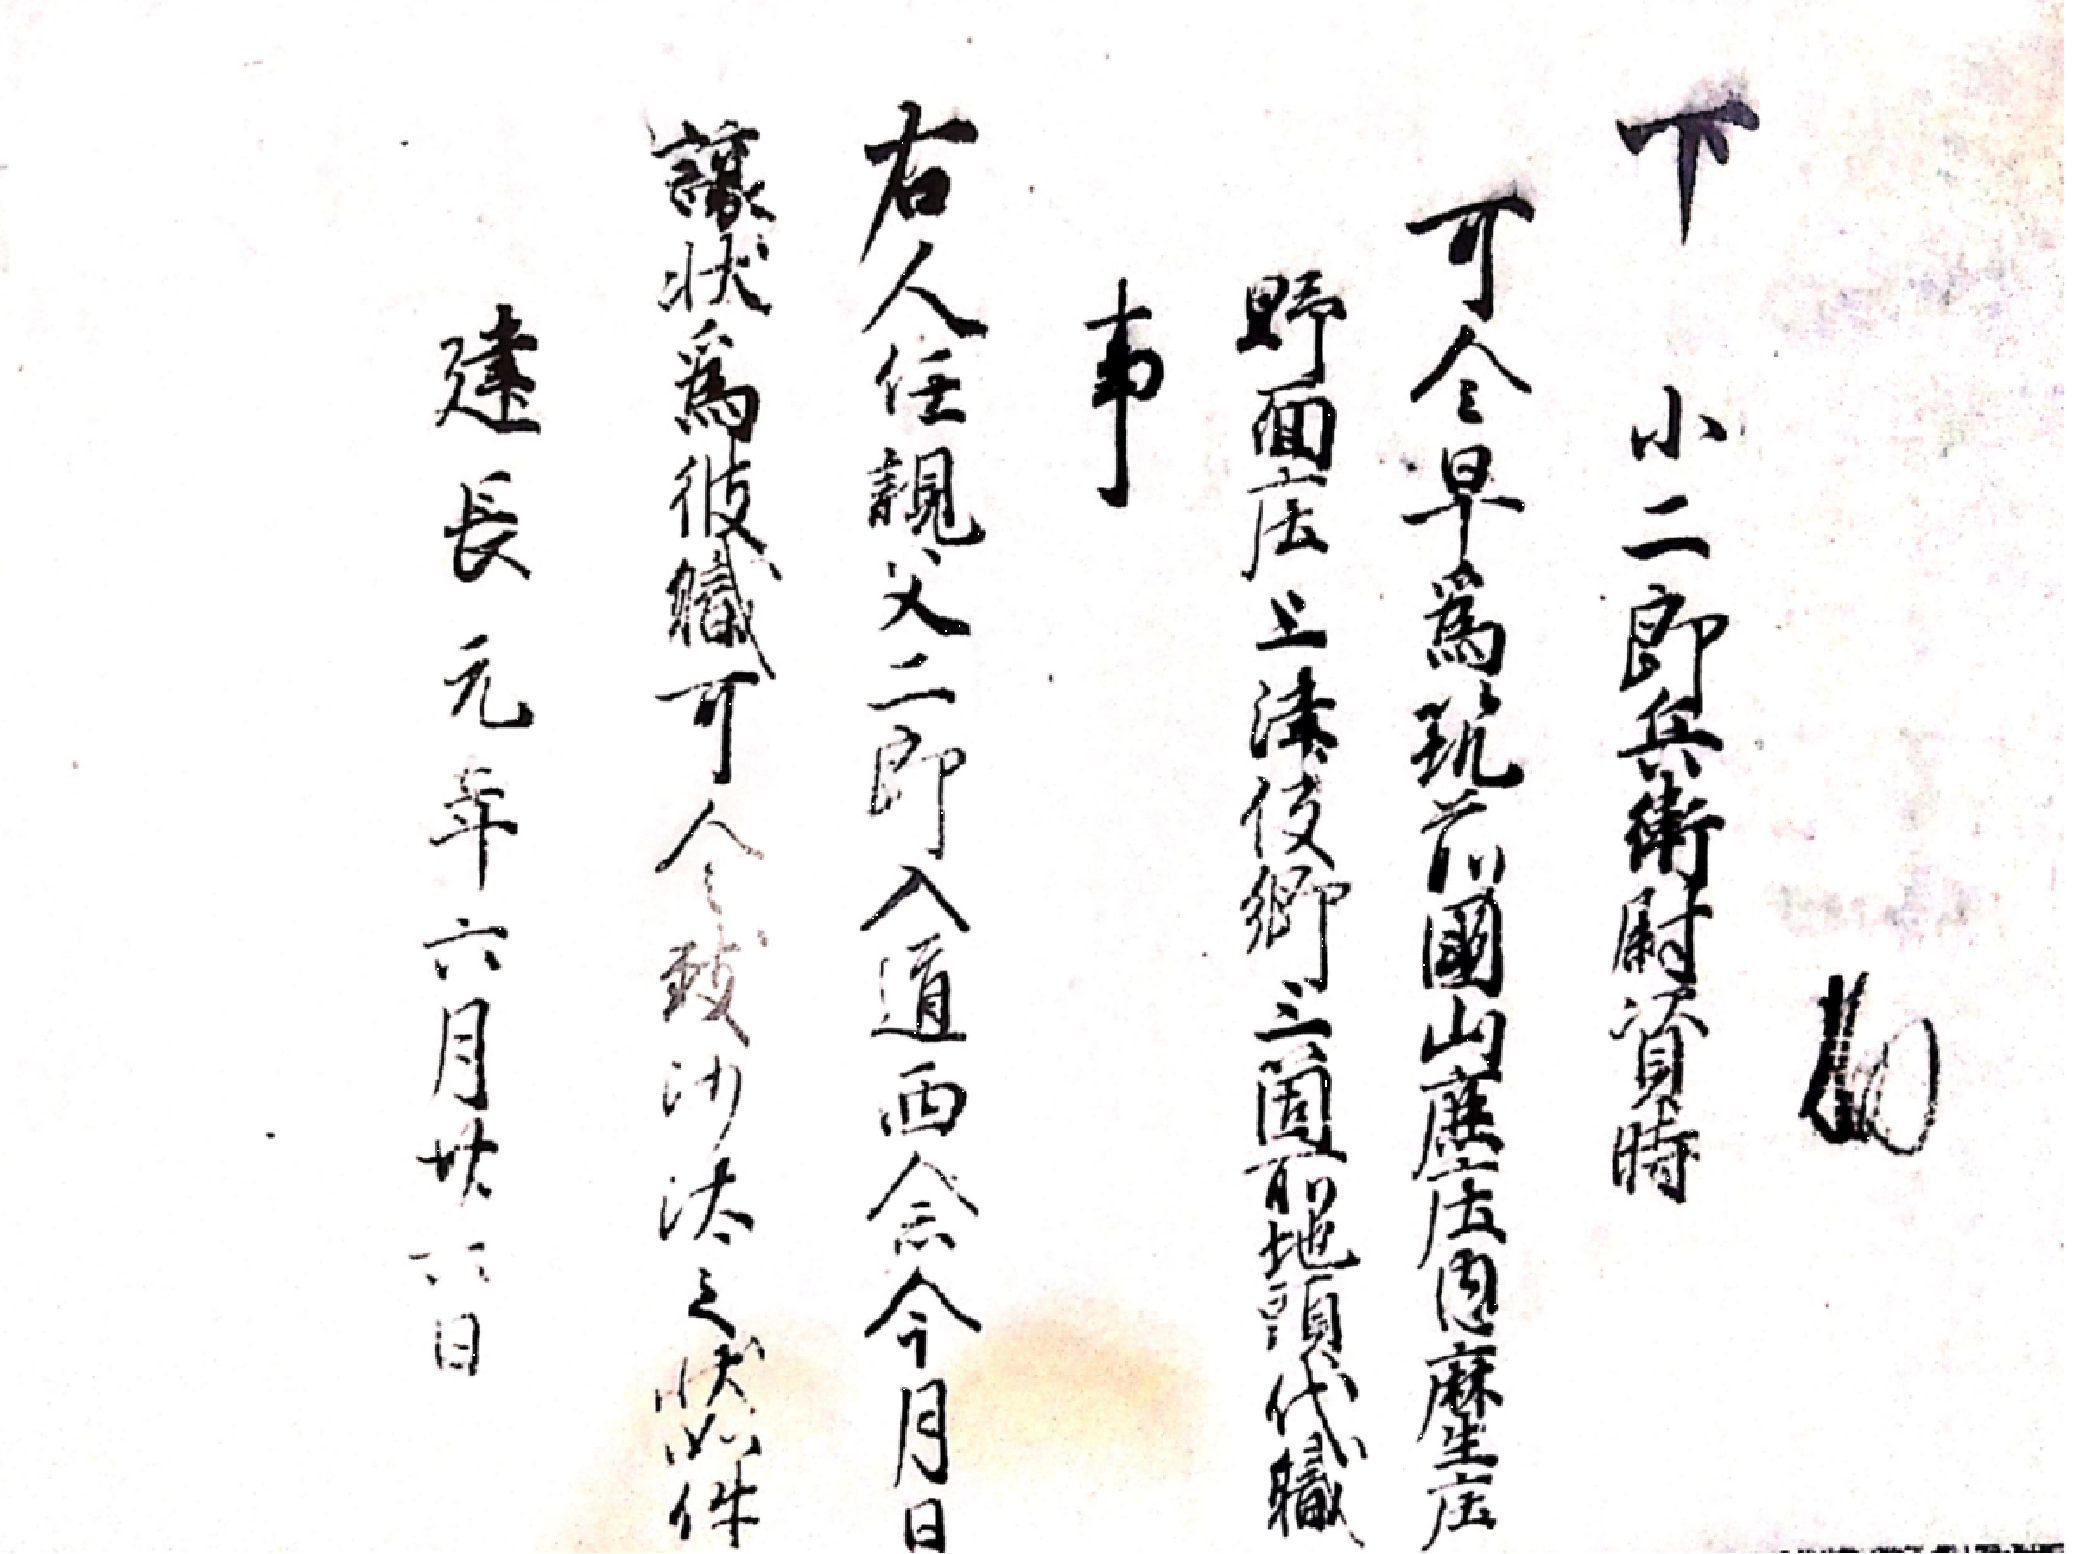 下　小二郎兵衛尉資時
可令早為筑前國山鹿庄内麻生庄
野面庄上津役郷三箇所地頭代職
事
右人任親父二郎入道西念今月日
譲状為彼職可令致沙汰之状如件
建長元年六月廿六日